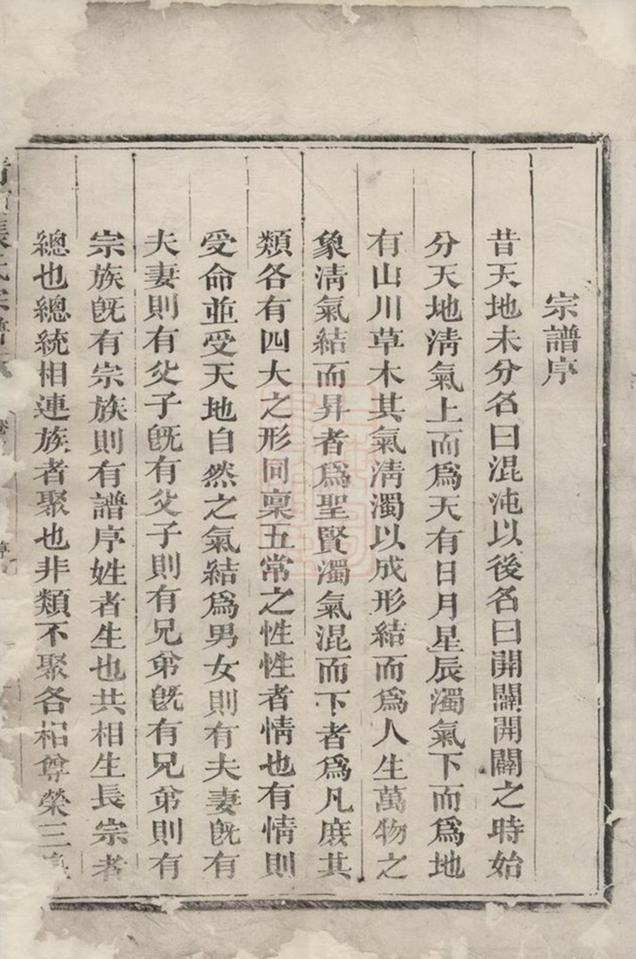 宗譜序
昔天地未分名曰混沌以後名曰開闢開闢之時始
分天地淸氣上而爲天有日月星辰濁氣下而爲地
有山川草木其氣淸濁以成形結而爲人生萬物之
象淸氣結而昇者爲聖賢濁氣混而下者爲凡庶其
類各有四大之形同稟五常之性性者情也有情則
受命並受天地自然之氣結爲男女則有夫妻旣有
夫妻則有父子旣有父子則有兄弟旣有兄弟則有
宗族旣有宗族則有譜序姓者生也共相生長宗者
總也總統相連族者聚也非類不聚各相尊榮三
氏宗譜